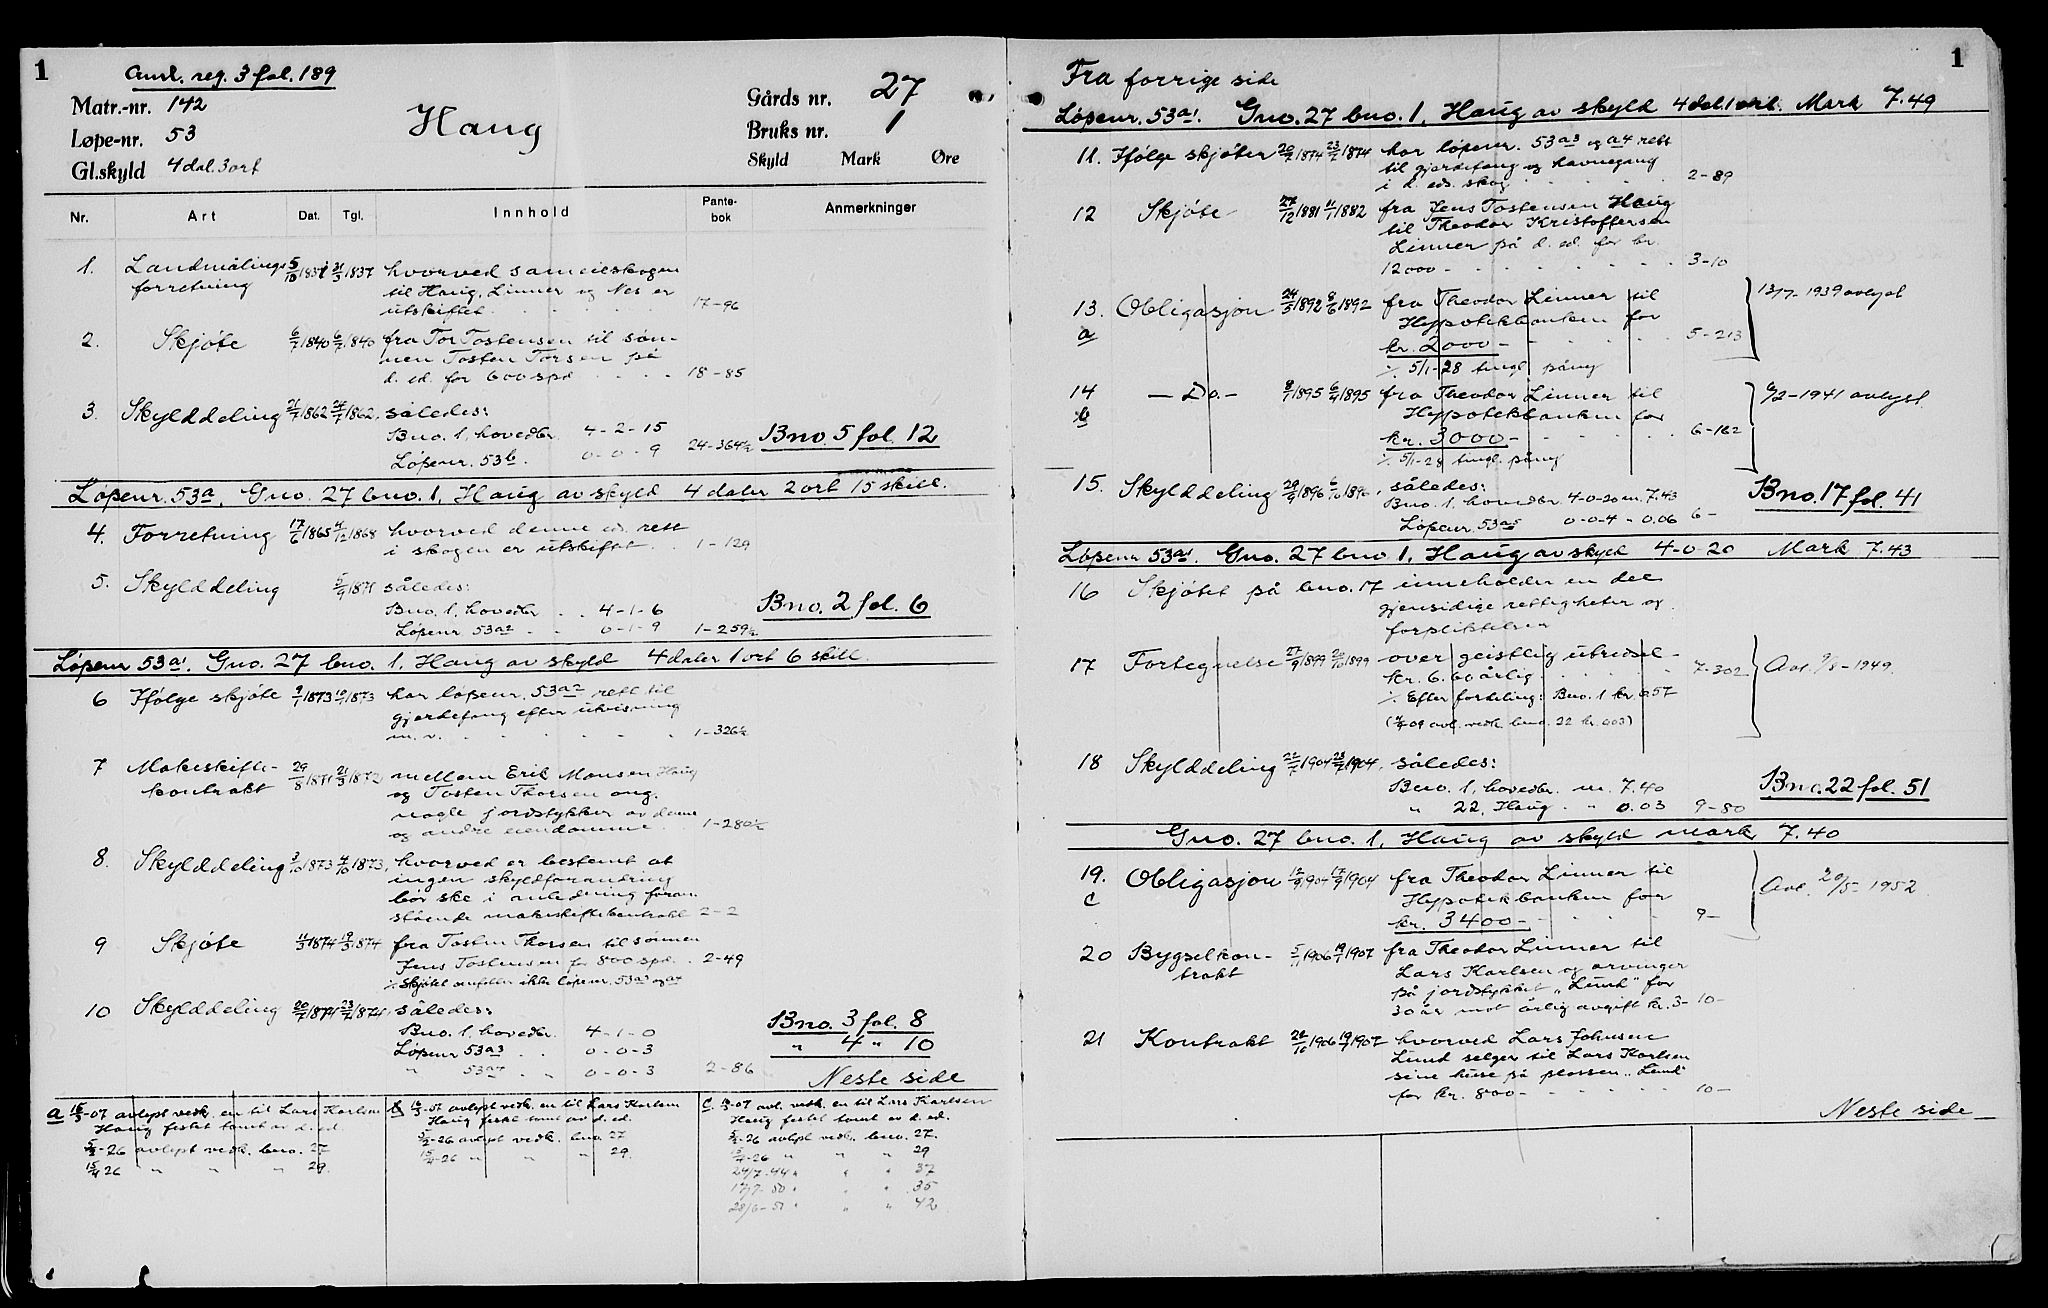 1
Aml. reg. 3 fol. 189
Matr.-nr. 142
Løpe-nr. 53
Gl.skyld 4 dal. 3 ort
Haug
Gårds nr. 27
Bruks nr. 1
Skyld Mark Øre
Nr. Art Dat. Tgl. Innhold Pante-bok Anmerkninger
1. Landmålings 5/10 1831 31/3 1837 hvorved sameieskogen
forretning til Haug, Linner og Nes er
utskiftet. 17-96
2. Skjøte 6/7 1840 6/7 1840 fra Tor Tostensen til søn-
nen Tosten Torsen på
d. ed. for 600 spd 18-85
3. Skylddeling 21/7 1862 24/7 1862, således:
Bno. 1, hovedbr. 4-2-15
Løpenr. 53b. 0-0-9 24-364½ Bno. 5 fol. 12
Løpenr. 53a, Gno. 27 bno. 1, Haug av skyld 4 daler 2 ort 15 skill.
4. Forretning 17/6 1865 4/12 1868 hvorved denne ed. rett
i skogen er utskiftet. 1-129
5. Skylddeling 5/9 1871 således:
Bno. 1, hovedbr. 4-1-6
Løpenr 53a2 0-1-9 1-259½ Bno. 2 fol. 6
Løpenr 53a1. Gno. 27 bno. 1, Haug av skyld 4 daler 1 ort 6 skill.
6 Ifølge skjøte 9/1 1873 10/1 1873 har løpenr. 53a2 rett til
gjerdefang efter utvisning
m. v. 1-326½
7 Makeskifte- 29/8 1871 21/3 1872 mellem Erik Monsen Haug
kontrakt og Tosten Thorsen ang.
nogle jordstykker av denne
og andre eiendomme. 1-280½
8. Skylddeling 3/10 1873 4/10 1873, hvorved er bestemt at
ingen skyldforandring
bør ske i anledning foran
stående makeskiftekontrakt 2-2
9 Skjøte 11/3 1874 19/3 1874 fra Tosten Thorsen til sønnen
Jens Tostensen for 800 spd. 2-49
% Skjøtet omfatter ikke løpenr. 53a3 og a4
10 Skylddeling 20/7 1874 23/7 1874, således:
Bno. 1, hovedbr. 4-1-0 Bno. 3 fol. 8
Løpenr 53a3 0-0-3 " 4 " 10
" 53a4 0-0-3 2-86
Neste side
a 16/3-07 avløst vedk. en til Lars Karlsen
Haug festet tomt av d. ed.
5/2-26 avløst vedk. bno. 27
15/4 26 " " " 29.
b 16/3-07 avløst vedk. en til Lars Karlsen
Haug festet tomt av d. ed.
5/2-26 avløst vedk. bno. 27
15/4-26 " " " 29.
c 16/3-07 avl. vedk. en til Lars Karlsen
Haug festet tomt av d. ed.
5/2-26 avløst vedk. bno. 27.
15/4-26 " " " 29
24/7-44 " " " 37
17/7-50 " " " 35
28/6-51 " " " 42
1
Fra forrige side
Løpenr. 53a1. Gno. 27 bno. 1, Haug av skyld 4 dal. 1 ort. Mark 7.49
11. Ifølge skjøter 20/7 1874 23/7 1874 har løpenr. 53a3 og a4 rett
til gjerdefang og havnegang
i d. eds. skog 2-89
12 Skjøte 27/12 1881 11/1 1882 fra Jens Tostensen Haug
til Theodor Kristoffersen
Linner på d. ed. for kr.
12000- 3-10
13. Obligasjon 24/5 1892 8/6 1892 fra Theodor Linner til
a Hypotekbanken for
kr. 2000- 5-213
% 5/1-28 tingl. påny
13/7-1939 avlyst
14 — Do. — 8/1 1895 6/4 1895 fra Theodor Linner til
b Hypotekbanken for
kr. 3000- 6-162
% 5/1-28 tingl. påny
6/2-1941 avlyst.
15. Skylddeling 29/9 1896 6/10 1896, således:
Bno. 1, hovedbr 4-0-20 m. 7.43
Løpenr. 53a5 0-0-4 " 0.06 6- Bno. 17 fol. 41
Løpenr 53a1. Gno. 27 bno 1, Haug av skyld 4-0-20 Mark 7.43
16 Skjøtet på bno. 17 inneholder en del
gjensidige rettigheter og
forpliktelser
17 Fortegnelse 27/9 1899 20/10 1899 over geistlig utredsel-
kr. 6.60 årlig 7-302
% Efter fordeling: Bno. 1 kr. 6.57
( 09 avl. vedk. bno. 22 kr. 0.03)
Avl. 9/8-1949.
18 Skylddeling 22/7 1904 28/7 1904, således:
Bno. 1, hovedbr. m. 7.40
" 22, Haug. " 0.03 9-80 Bno. 22 fol. 51
Gno. 27 bno. 1, Haug av skyld mark 7.40
19. Obligasjon 12/9 1904 17/9 1904 fra Theodor Linner til
c Hypotekbanken for
kr. 3400- 9-
Avl. 20/5-1952
20 Bygselkon- 5/11 1906 19/1 1907 fra Theodor Linner til
trakt Lars Karlsen og arvinger
på jordstykket "Lund" for
30 år mot årlig avgift kr. 3- 10-
21 Kontrakt 22/10 1906 19/1 1907 hvorved Lars Johnsen
Lund selger til Lars Karlsen
sine huse på plassen "Lund"
for kr. 800- 10-
Neste side